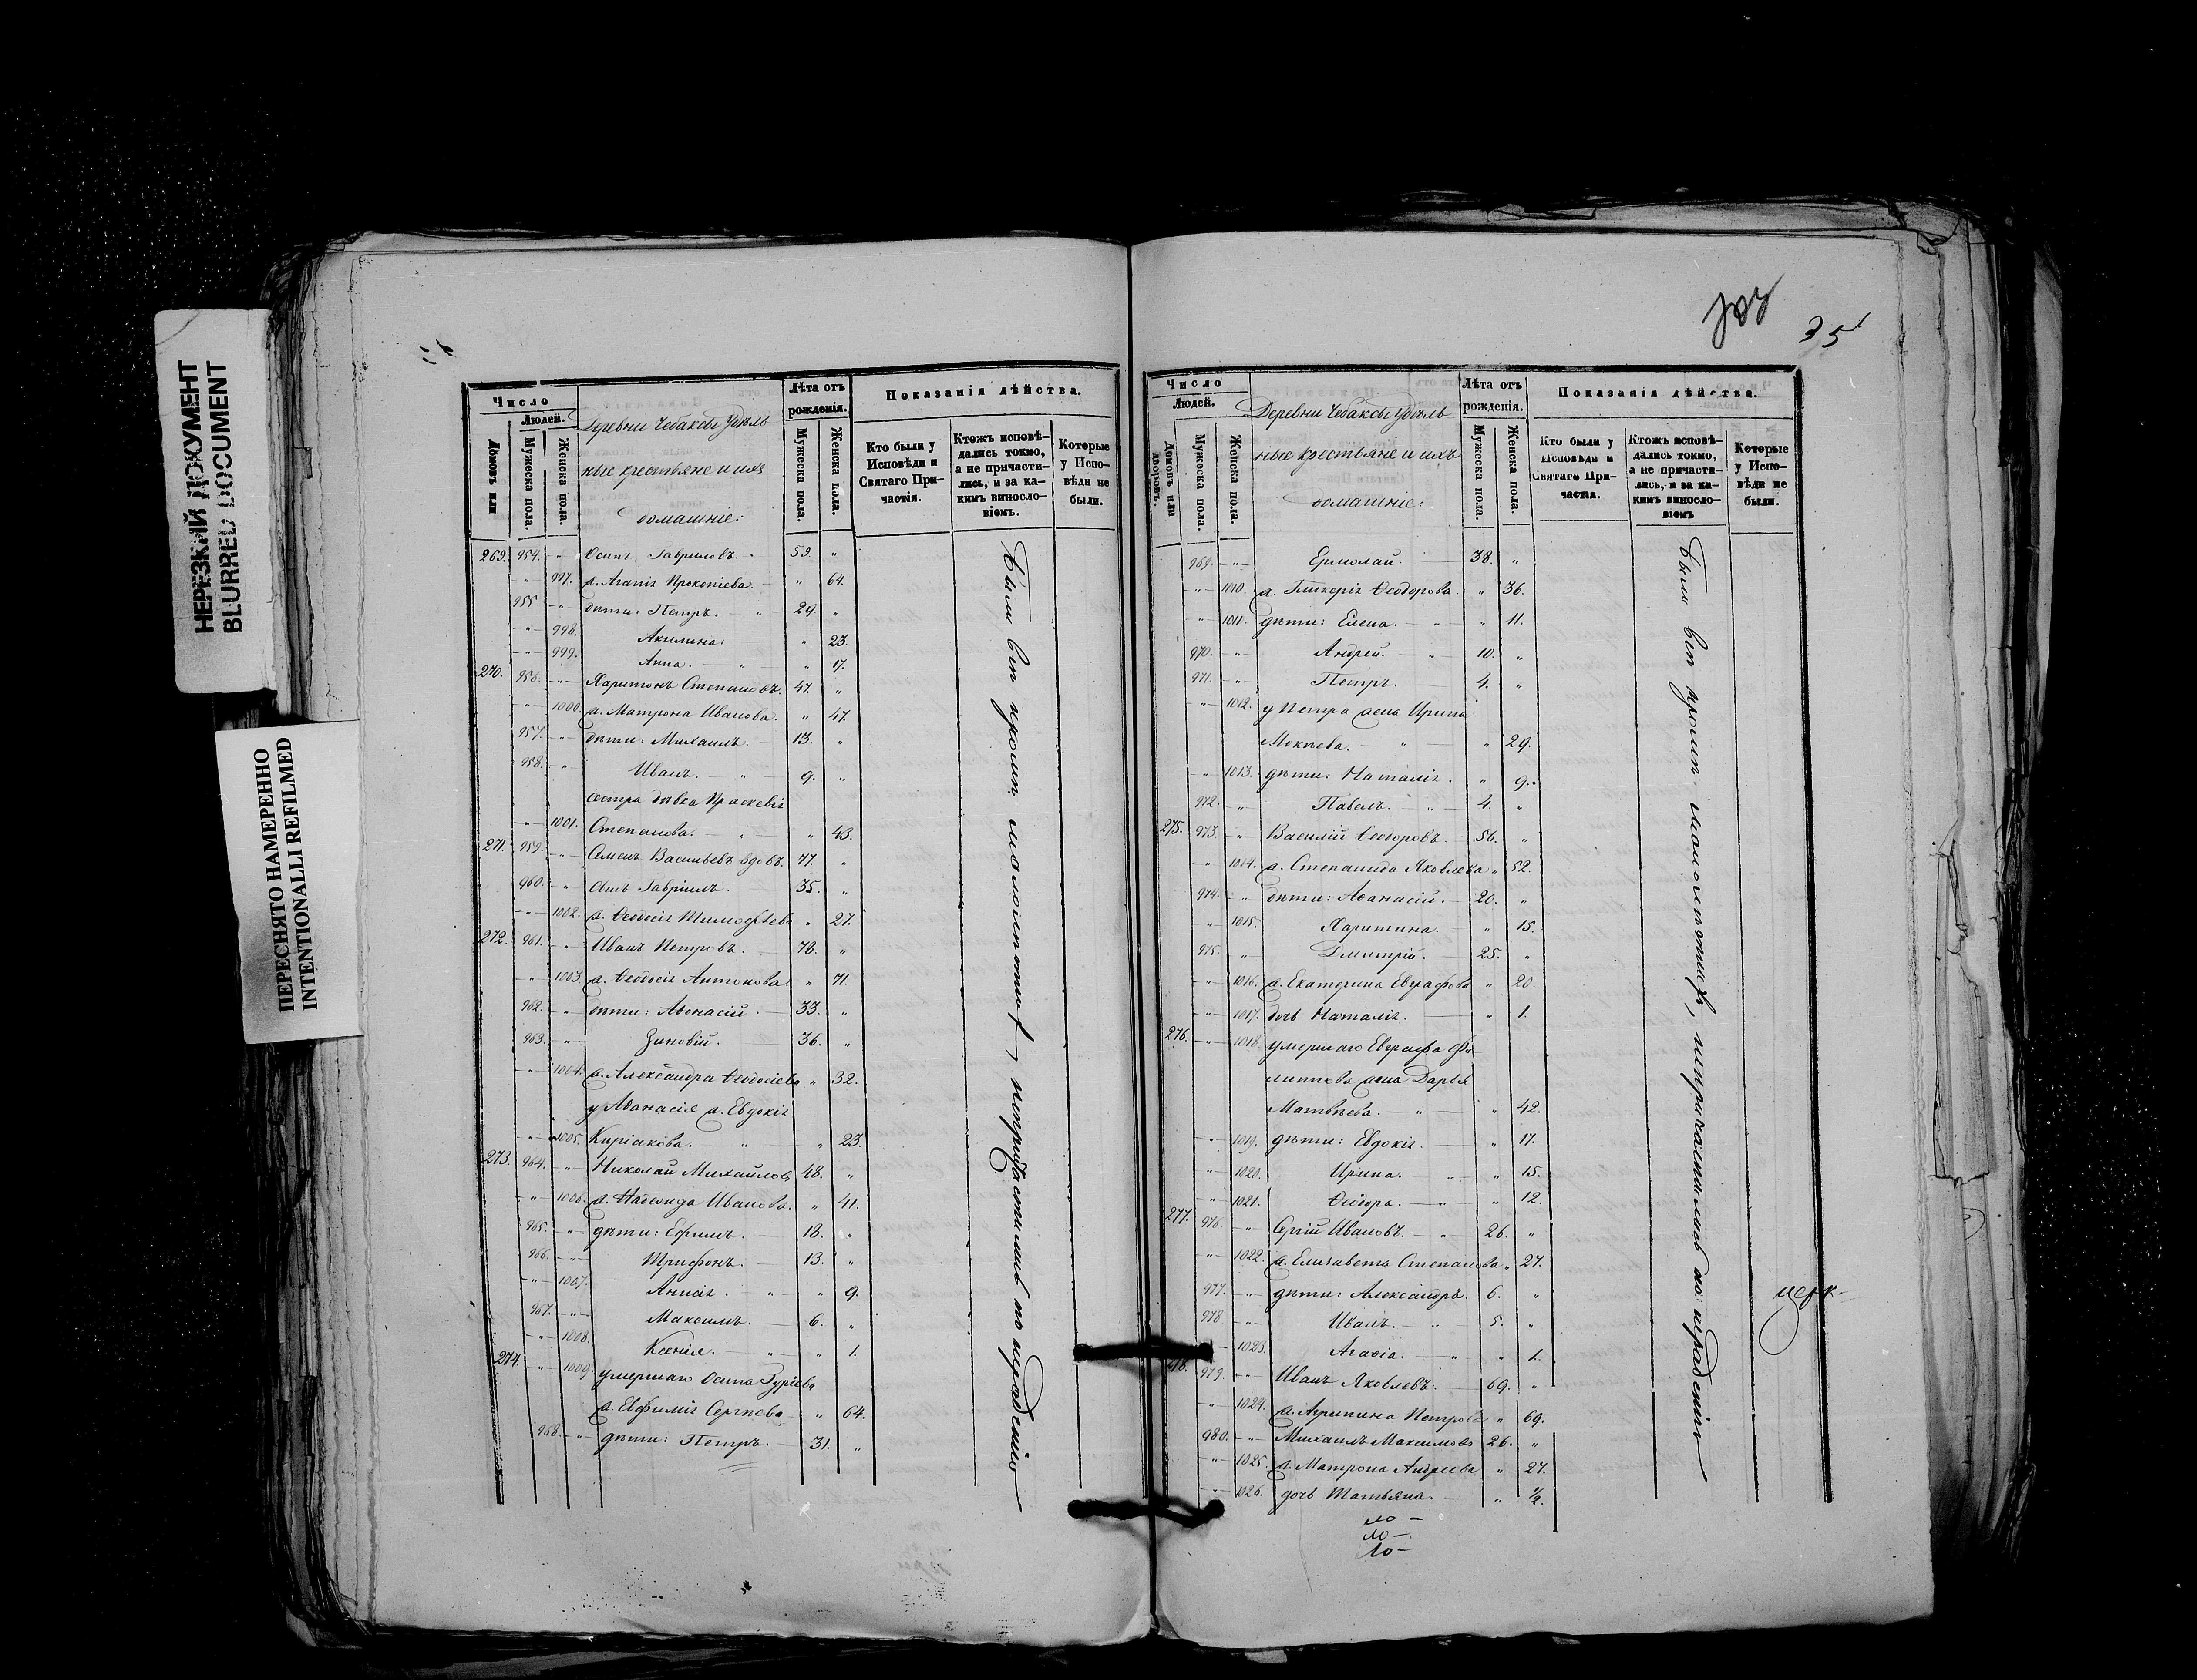 НЕРЕЗКИЙ ДОКУМЕНТ
BLURRED DOCUMENT
ПЕРЕСНЯТО НАМЕРЕННО
INTENTIONALLI REFILMED
Число
Людей.
Домовъ или
Мужеска пола.
Женска пола.
Деревни Чебаковы Удѣль
ные крестьяне и ихъ
домашніе:
Лѣта отъ
рожденія.
Мужеска пола.
Женска пола.
Показанія дѣйства.
Кто были у
Исповѣди и
Святаго При-
частія.
Ктожъ исповѣ-
дались токмо,
а не причасти-
лись, и за ка-
кимъ винносло-
віемъ.
Которые
у Испо-
вѣди не
были.
269. 954. -"- Осипъ Гавриловъ. 59. "
-"- 997. ж. Агапія Прокопіева. " 64.
955. -"- дѣти: Петръ. 29. "
-"- 998. Акилина. " 23.
-"- 999. Анна. " 17.
270. 956. -"- Харитонъ Степановъ. 47. "
-"- 1000. ж. Матрона Иванова. " 47.
957. -"- дѣти: Михаилъ. 13. "
958. -"- Иванъ. 9. "
сестра дѣвка Праскевія
-"- 1001. Степанова. " 43.
271. 959. -"- Семенъ Васильевъ вдовъ. 77. "
960. -"- сынъ Гавріилъ. 35. "
-"- 1002. ж. Ѳеодосія Тимофѣева " 27.
272. 961. -"- Иванъ Петровъ. 78. "
-"- 1003. ж. Ѳеодосія Антонова. " 71.
962. -"- дѣти: Аѳонасій. 33. "
963. -"- Зиновій. 36. "
-"- 1004. ж. Александра Ѳеодосіева " 32.
у Аѳанасія ж. Евдокія
-"- 1005. Киріакова. " 23.
273. 964. -"- Николай Михайловъ 48. "
-"- 1006. ж. Надежда Иванова. " 41.
965. -"- дѣти: Ефимъ. 18. "
966. -"- Трифонъ. 13. "
-"- 1007. Анисія. " 9.
967. -"- Максимъ. 6. "
-"- 1008. Ксенія. " 1.
274. -"- 1009. умершаго Осипа Гуріева
ж. Евфимія Сергѣева " 64.
968. -"- дѣти: Петръ. 31. "
Были всѣ кромѣ малолѣтныхъ, непричастились по нерадѣнію
351
Число
Людей.
Домовъ или
дворовъ.
Мужеска пола.
Женска пола.
Деревни Чебаковы Удѣль
ные крестьяне и ихъ
домашніе:
Лѣта отъ
рожденія.
Мужеска пола.
Женска пола.
Показанія дѣйства.
Кто были у
Исповѣди и
Святаго При-
частія.
Ктожъ исповѣ-
дались токмо,
а не причасти-
лись, и за ка-
кимъ винносло-
віемъ
Которые
у Испо-
вѣди не
были.
969. -"- Ермолай. 38. "
-"- 1010. ж. Гликерія Ѳеодорова. " 36.
-"- 1011. дѣти: Елена. " 11.
970. -"- Андрей. 10. "
971. -"- Петръ. 4. "
-"- 1012. у Петра жена Ирина
Мокѣева. " 29.
-"- 1013. дѣти: Наталія. " 9.
972. -"- Павелъ. 4. "
275. 973. -"- Василій Ѳеодоровъ. 56. "
-"- 1004. ж. Степанида Яковлева " 52.
974. -"- дѣти: Аѳанасій. 20. "
-"- 1015. Харитина. " 15.
975. -"- Дмитрій. 25. "
-"- 1016. ж. Екатерина Евграфова " 20.
-"- 1017. дочь Наталія. " 1.
276. -"- 1018. умершаго Евграфа Фи
липпова жена Дарья
Матвѣева. " 42.
-"- 1019. дѣти: Евдокія. " 17.
-"- 1020. Ирина. " 15.
-"- 1021. Ѳеодора. " 12.
277. 976. -"- Сергій Ивановъ. 26. "
-"- 1022. ж. Елизавета Степанова " 27.
977. -"- дѣти: Александръ. 6. "
978. -"- Иванъ. 5. "
1023. Агафія. " 1.
278. 979. -"- Иванъ Яковлевъ. 69. "
-"- 1024. ж. Агрипина Петрова " 69.
980. -"- Михаилъ Максимовъ 26. "
-"- 1025. ж. Матрона Андреева " 27.
-"- 1026. дочь Татьяна. " 1/2.
Были всѣ кромѣ малолѣтныхъ, непричастились по нерадѣнію
церк-